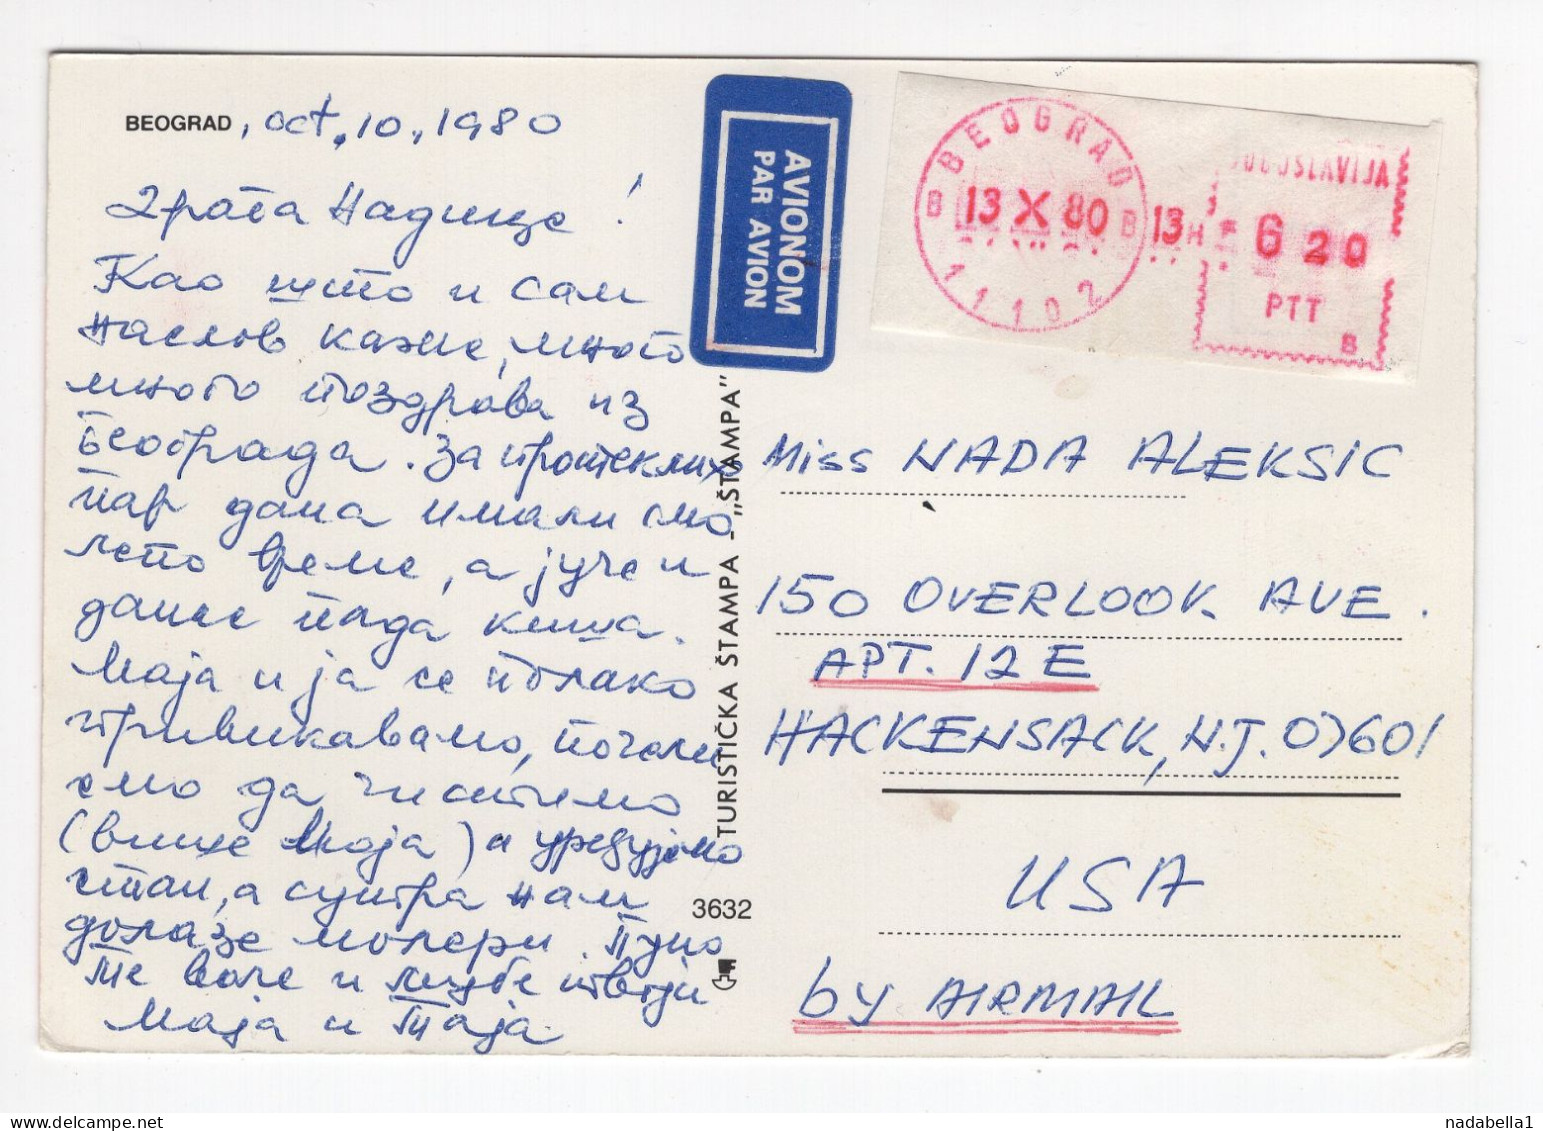 BEOGRAD, Oct, 10, 1980
Драга Надице!
Као што и сам
наслов каже, много
много поздрава из
Београда. За протеклих
пар дана имали смо
лепо време, а јуче и
данас пада киша.
Маја и ја се полако
привикавамо, почели
смо да чистимо
(више Маја) и уређујемо
стан, а сутра нам
долазе молери. Пуно
те воле и љубе твоји
Маја и Таја
AVIONOM
PAR AVION
TURISTIČKA ŠTAMPA - „ŠTAMPA"
3632
BEOGRAD
B 13 X 80 B 13H
11102
JUGOSLAVIJA
6 20
PTT
B
Miss NADA ALEKSIC
150 OVERLOOK AVE.
APT. 12 E
HACKENSACK, N.J. 07601
USA
by AIRMAIL
nadabella1